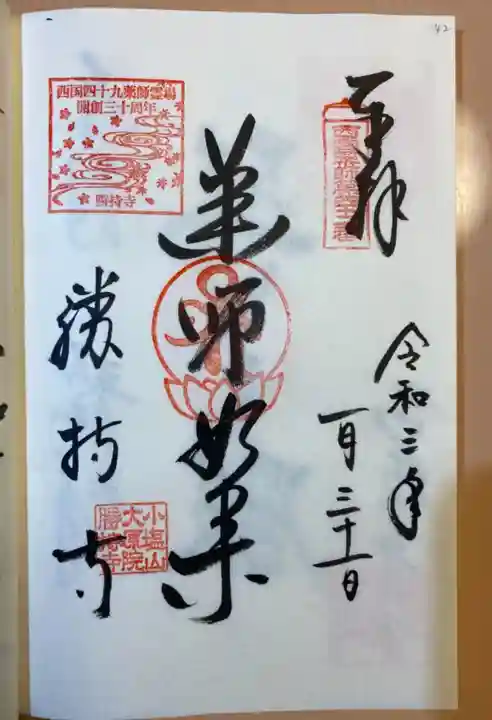 42
奉拝
令和三年
一月三十一日
薬師如来
西国四十九薬師霊場
開創三十周年
勝持寺
勝持寺
小塩山
大原院
勝持寺